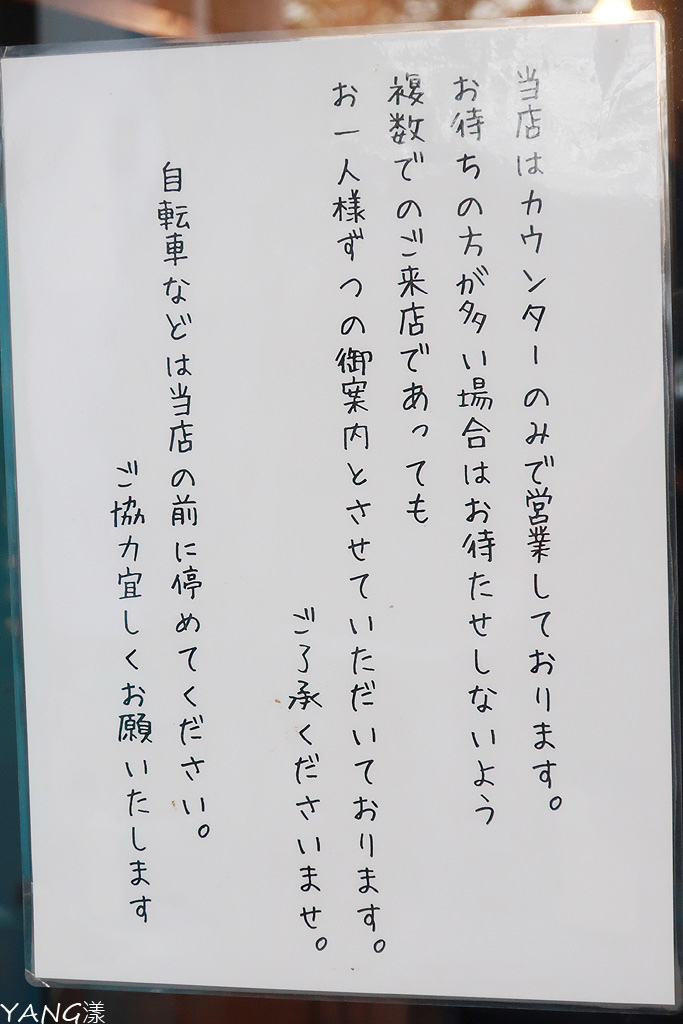 当店はカウンターのみで営業しております。
お待ちの方が多い場合はお待たせしないよう
複数でのご来店であっても
お一人様ずつの御案内とさせていただいております。
ご了承くださいませ。
自転車などは当店の前に停めてください。
ご協力宜しくお願いいたします
YANG漾